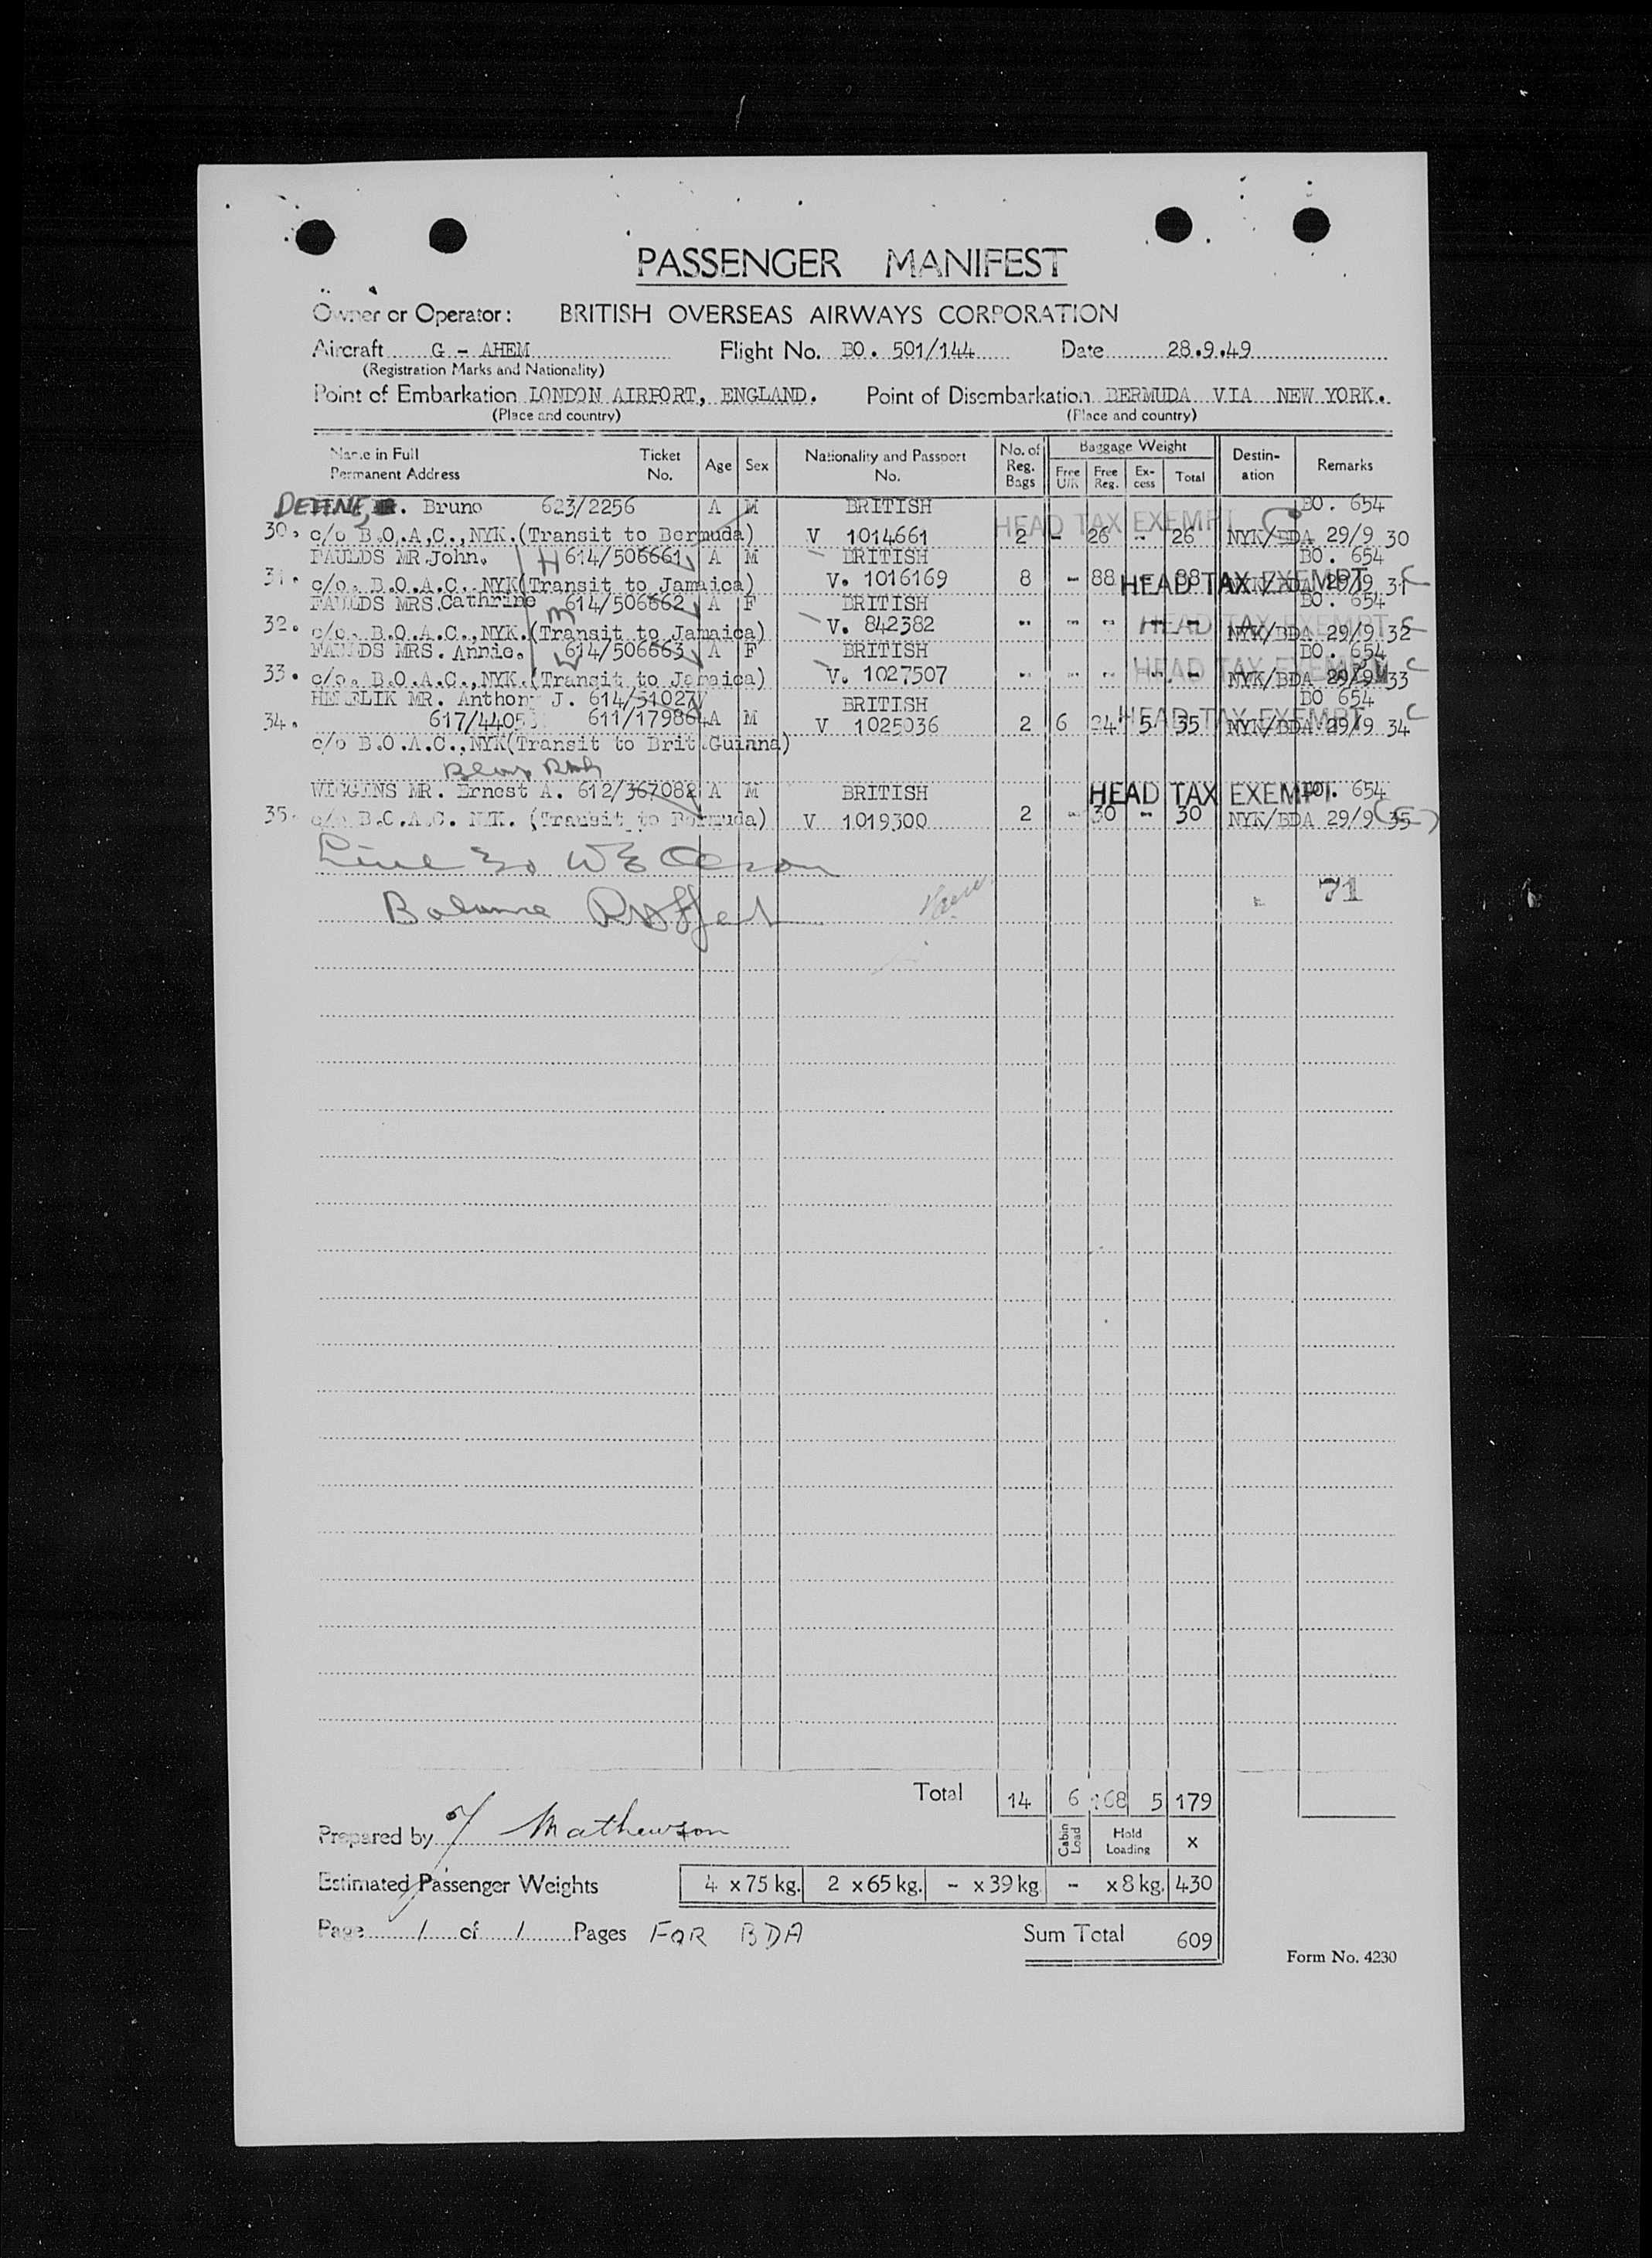 PASSENGER MANIFEST
Owner or Operator: BRITISH OVERSEAS AIRWAYS CORPORATION
Aircraft G - AHEM Flight No. BO. 501/144 Date 28.9.49
(Registration Marks and Nationality)
Point of Embarkation LONDON AIRPORT, ENGLAND. Point of Disembarkation BERMUDA VIA NEW YORK.
(Place and country) (Place and country)
Name in Full Permanent Address Ticket No. Age Sex Nationality and Passport No. No. of Reg. Bags Baggage Weight Free U/K Free Reg. Ex-cess Total Destin-ation Remarks
DEHNE, . Bruno 623/2256 A M BRITISH BO. 654
HEAD TAX EXEMPT C
30. c/o B.O.A.C., NYK.(Transit to Bermuda) V 1014661 2 - 26 - 26 NYK/BDA 29/9 30
FAULDS MR.John. H 614/506661 A M BRITISH BO. 654
31. c/o. B.O.A.C. NYK(Transit to Jamaica) V. 1016169 8 - 88 - 88 HEAD TAX EXEMPT NYK/BDA 29/9 31 C
FAULDS MRS.Cathrine 614/506662 A F BRITISH BO. 654
32. c/o. B.O.A.C.,NYK.(Transit to Jamaica) V. 842382 - - - - - HEAD TAX EXEMPT NYK/BDA 29/9 32 C
FAULDS MRS. Annie. 614/506663 A F BRITISH BO. 654
33. c/o. B.O.A.C.,NYK.(Transit to Jamaica) V. 1027507 - - - - - HEAD TAX EXEMPT NYK/BDA 29/9 33 C
MR. Anthony J. 614/51027 BRITISH BO 654
34. 617/4405 611/179864 A M V 1025036 2 6 24 5 35 HEAD TAX EXEMPT NYK/BDA 29/9 34 C
c/o B.O.A.C.,NYK(Transit to Brit.Guinna)
WIGGINS MR. Ernest A. 612/367082 A M BRITISH HEAD TAX EXEMPT BO. 654
35. c/o B.O.A.C. NYK. (Transit to Bermuda) V 1019300 2 - 30 - 30 NYK/BDA 29/9 35
Line 30 W E
Balance
71
Total 14 6 168 5 179
Prepared by Mathewson Cabin Load Hold Loading x
Estimated Passenger Weights 4 x 75 kg. 2 x 65 kg. - x 39 kg - x 8 kg. 430
Page 1 of 1 Pages FOR BDA Sum Total 609
Form No. 4230